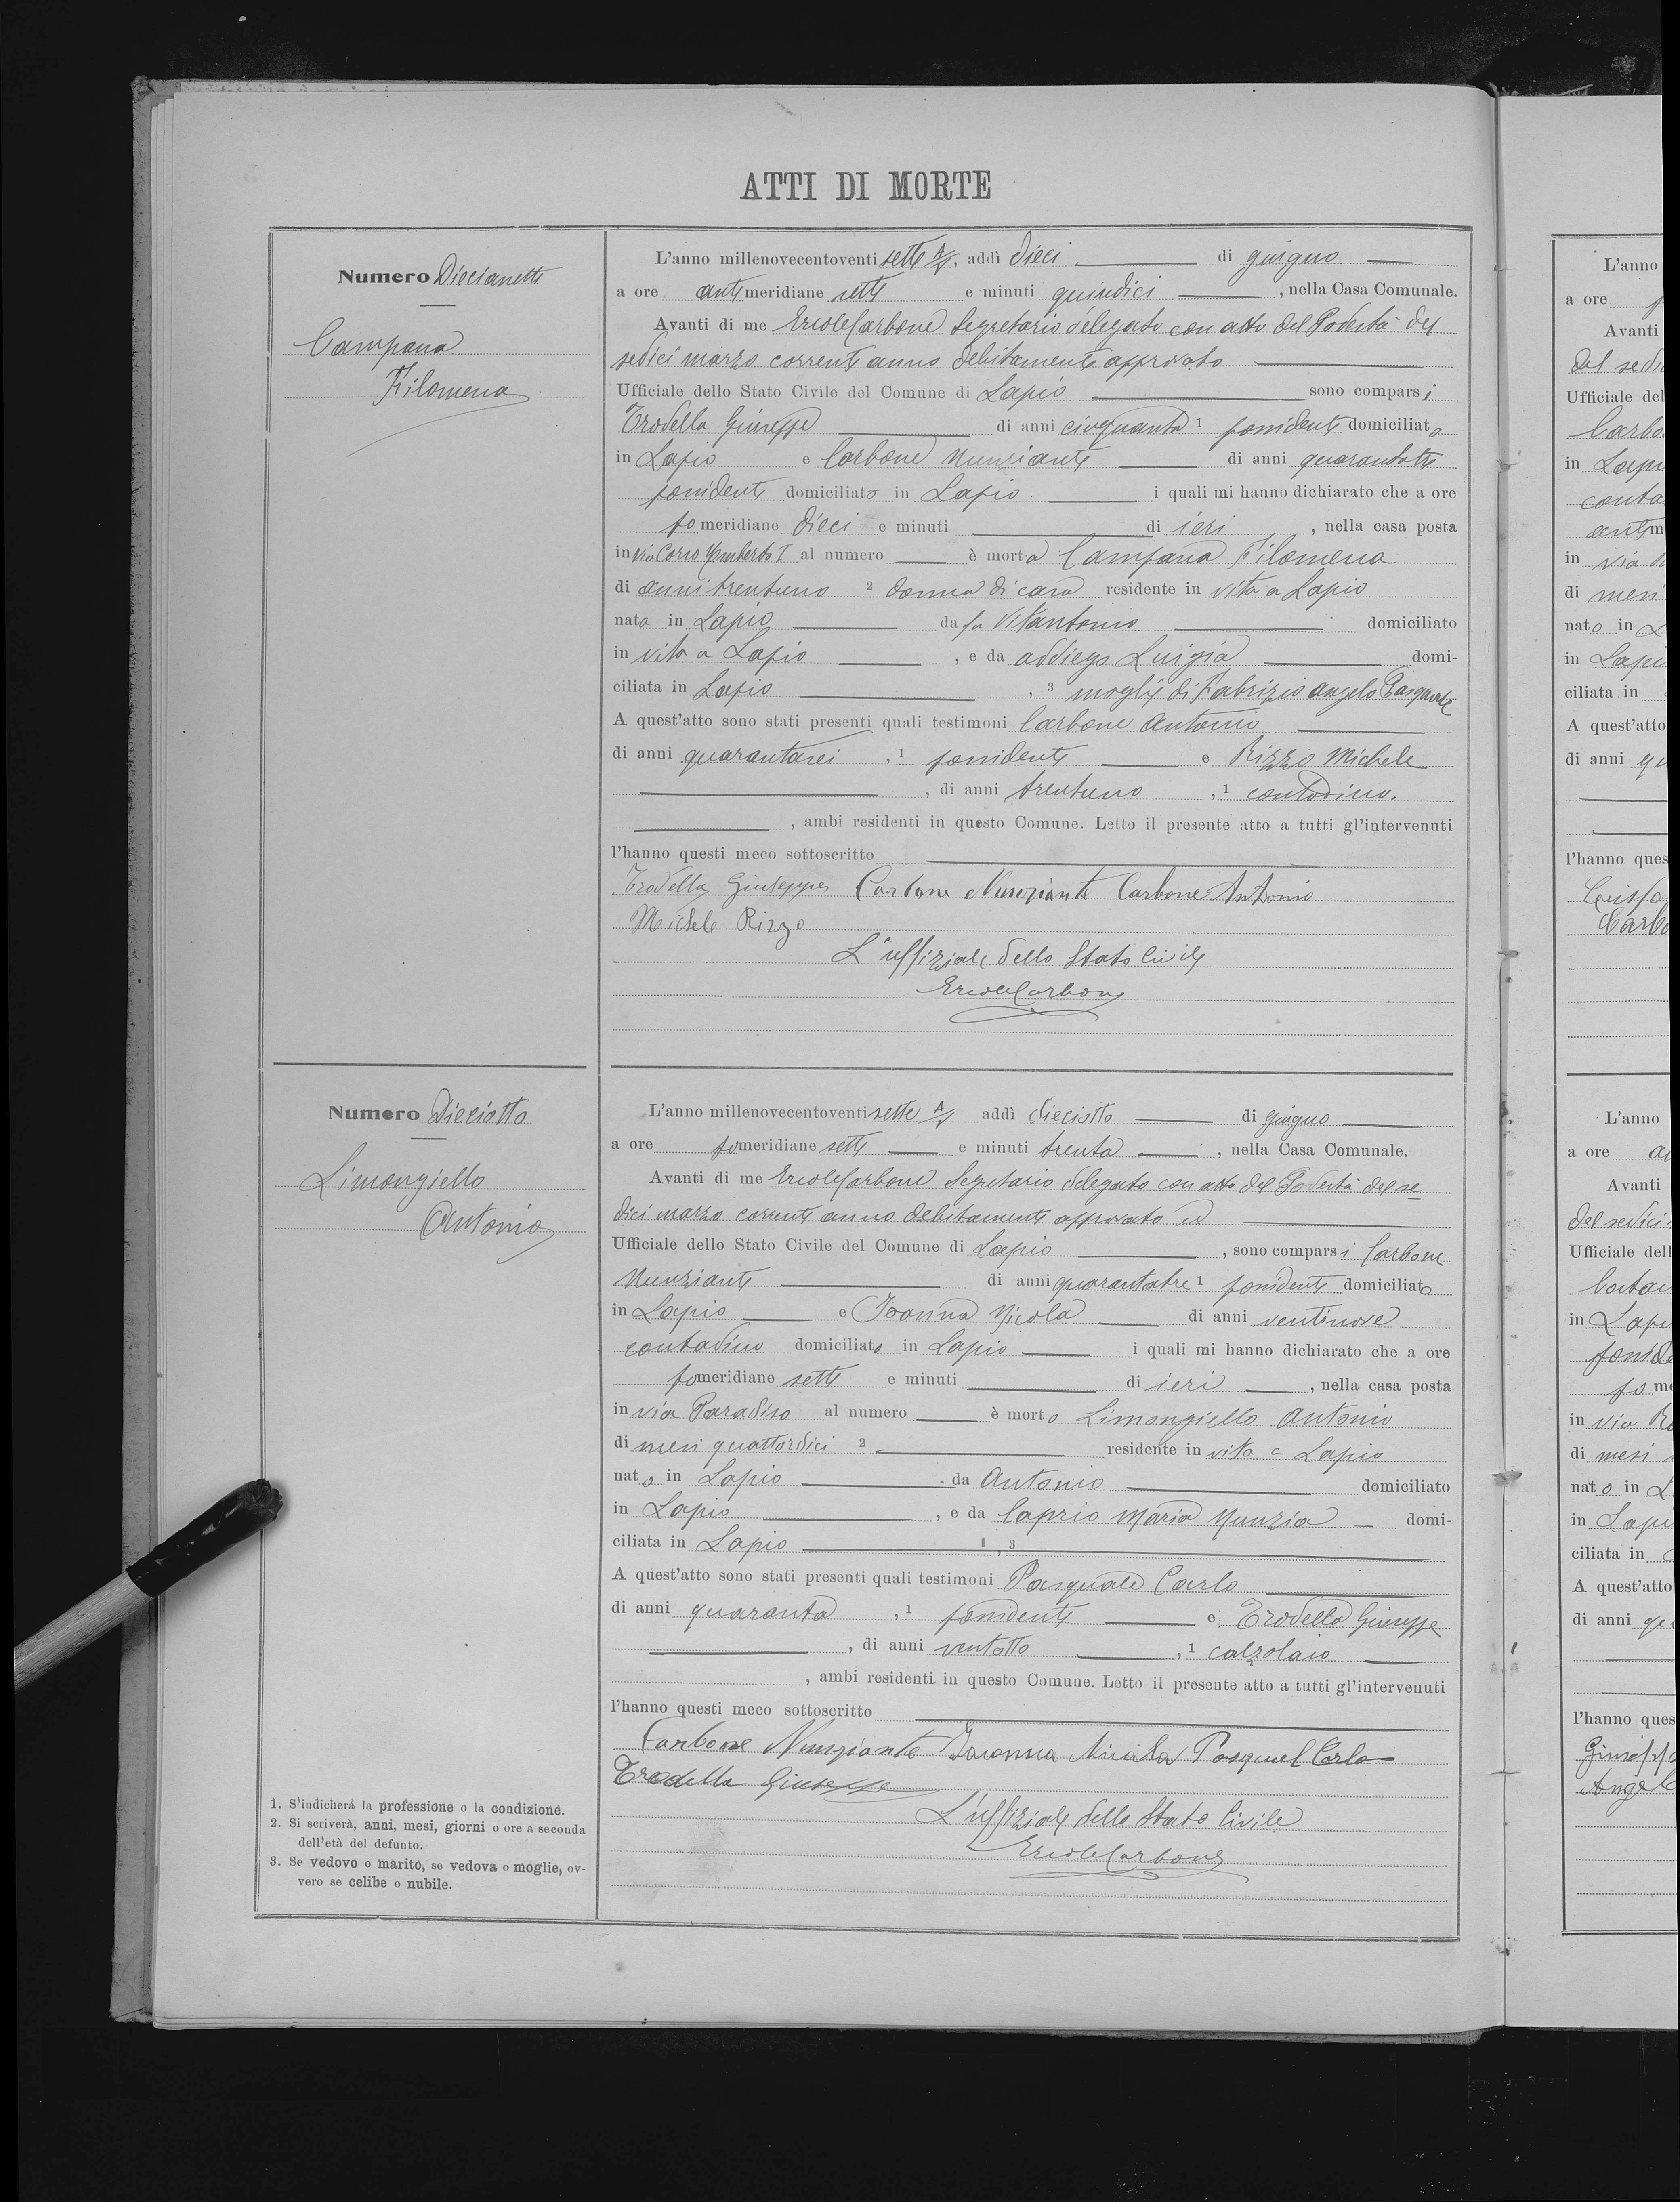 ATTI DI MORTE
Numero Diecianette
Campana
Filomena
L'anno millenovecentoventi sette A/V, addì dieci di giugno
a ore antimeridiane sette e minuti quindici, nella Casa Comunale.
Avanti di me Ercole Carbone Segretario delegato con atto del Podestà del
sedici marzo corrente anno debitamente approvato
Ufficiale dello Stato Civile del Comune di Lapio sono comparsi
Trodella Giuseppe di anni cinquanta 1 possidente domiciliato
in Lapio e Carbone Nunziante di anni quarantatre
possidente domiciliato in Lapio i quali mi hanno dichiarato che a ore
pomeridiane dieci e minuti di ieri, nella casa posta
in via Corso Umberto I al numero è morta Campana Filomena
di anni trentuno 2 donna di casa residente in vita a Lapio
nata in Lapio da fu Vitantonio domiciliato
in vita a Lapio, e da Addiego Luigia domi-
ciliata in Lapio, 3 moglie di Fabrizio Angelo Pasquale
A quest'atto sono stati presenti quali testimoni Carbone Antonio
di anni quarantasei, 1 possidente e Rizzo Michele
, di anni trentuno, 1 contadino.
, ambi residenti in questo Comune. Letto il presente atto a tutti gl'intervenuti
l'hanno questi meco sottoscritto
Trodella Giuseppe Carbone Nunziante Carbone Antonio
Michele Rizzo
L'uffiziale dello Stato Civile
Ercole Carbone
Numero Dieciotto
Limongiello
Antonio
L'anno millenovecentoventi sette A/V addì dieciotto di giugno
a ore pomeridiane sette e minuti trenta, nella Casa Comunale.
Avanti di me Ercole Carbone Segretario delegato con atto del Podestà del se
dici marzo corrente anno debitamente approvato ed
Ufficiale dello Stato Civile del Comune di Lapio, sono comparsi Carbone
Nunziante di anni quarantatre 1 possidente domiciliato
in Lapio e Ioanna Nicola di anni ventinove
contadino domiciliato in Lapio i quali mi hanno dichiarato che a ore
pomeridiane sette e minuti di ieri, nella casa posta
in via Paradiso al numero è morto Limongiello Antonio
di mesi quattordici 2 residente in vita a Lapio
nato in Lapio da Antonio domiciliato
in Lapio, e da Caprio Maria Nunzia domi-
ciliata in Lapio, 3
A quest'atto sono stati presenti quali testimoni Pasquale Carlo
di anni quaranta, 1 possidente e Trodella Giuseppe
, di anni ventotto, 1 calzolaio
, ambi residenti in questo Comune. Letto il presente atto a tutti gl'intervenuti
l'hanno questi meco sottoscritto
Carbone Nunziante Iaonna Nicola Pasqual Carlo
Trodella Giuseppe
L'uffiziale dello Stato Civile
Ercole Carbone
1. S'indicherà la professione o la condizione.
2. Si scriverà, anni, mesi, giorni o ore a seconda
dell'età del defunto.
3. Se vedovo o marito, se vedova o moglie, ov-
vero se celibe o nubile.
L'anno
a ore
Avanti
del sedi
Ufficiale del
Carbo
in Lapi
conta
antim
in via
di mesi
nato in L
in Lapi
ciliata in
A quest'atto
di anni qu
l'hanno ques
Carbo
L'anno
a ore
Avanti
del sedici
Ufficiale dell
in Lapi
posside
po me
in via
di mesi
nato in L
in Lapi
ciliata in
A quest'atto
di anni
l'hanno ques
Giusepp
Angelo